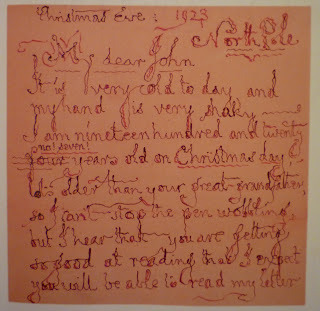 Christmas Eve: 1923
North Pole
My dear John
It is very cold to day and
my hand is very shaky
I am nineteen hundred and twenty
no! seven!
four years old on Christmas day &
lots older than your great-grandfather,
so I can't stop the pen wobbling,
but I hear that you are getting
so good at reading that I expect
you will be able to read my letter